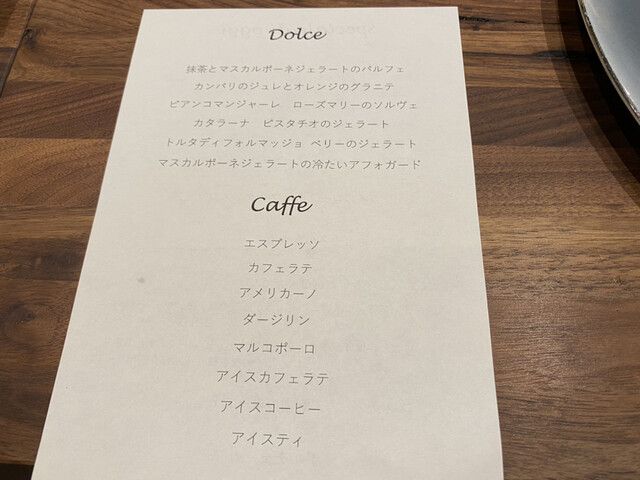 Dolce
抹茶とマスカルポーネジェラートのパルフェ
カンパリのジュレとオレンジのグラニテ
ビアンコマンジャーレ ローズマリーのソルヴェ
カタラーナ ピスタチオのジェラート
トルタディフォルマッジョ ベリーのジェラート
マスカルポーネジェラートの冷たいアフォガード
Caffe
エスプレッソ
カフェラテ
アメリカーノ
ダージリン
マルコポーロ
アイスカフェラテ
アイスコーヒー
アイスティ